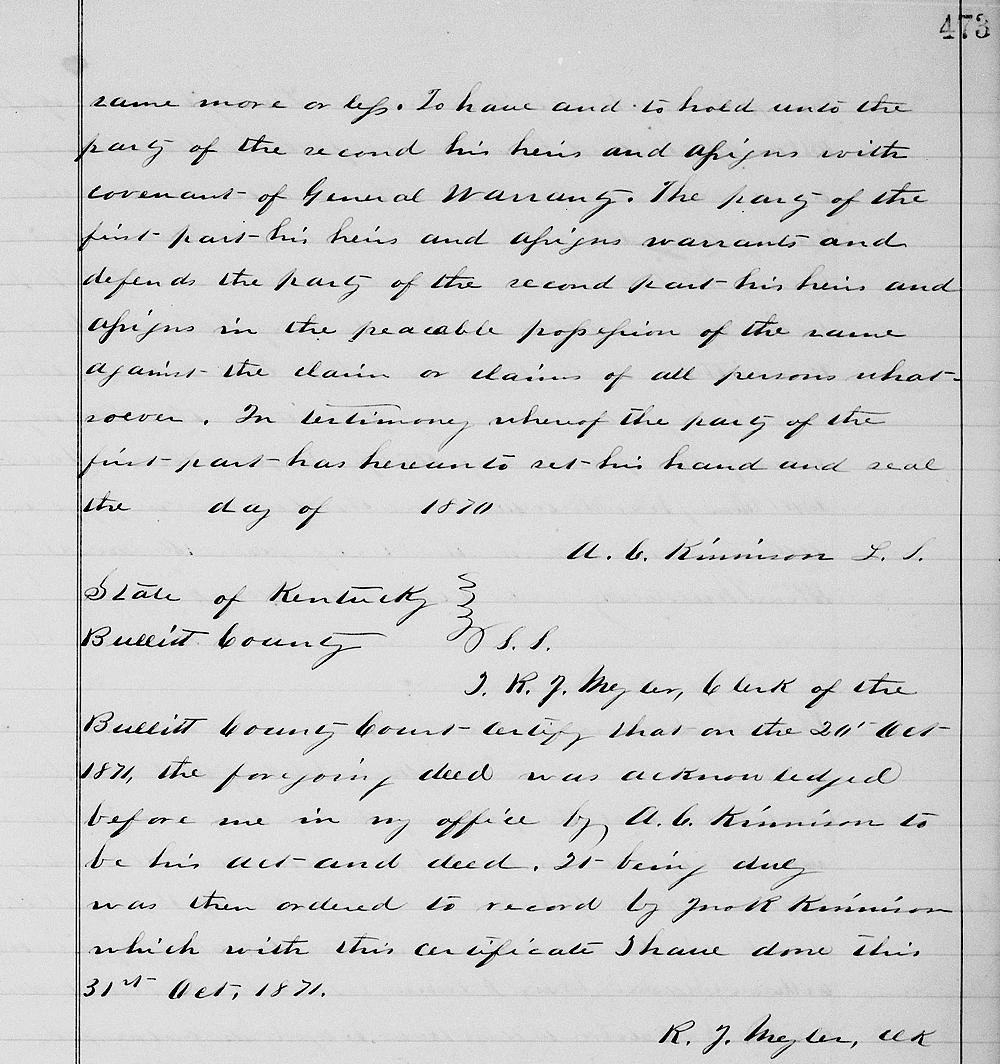 473
same more or less. To have and to hold unto the
party of the second his heirs and assigns with
covenant of General Warranty. The party of the
first part his heirs and assigns warrants and
defends the party of the second part his heirs and
assigns in the peacable possession of the same
against the claim or claims of all persons what-
soever. In testimony whereof the party of the
first part has hereunto set his hand and seal
the day of 1870
A. C. Kinnison L. S.
State of Kentucky
Bullitt County S. S.
I. R. J. Meyler, Clerk of the
Bullitt County Court certify that on the Oct
1871, the foregoing deed was acknowledged
before me in my office by A. C. Kinnison to
be his act and deed. It being duly
was then ordered to record by Jno R Kinnison
which with this certificate I have done this
31st Oct, 1871.
R. J. Meyler, Clk